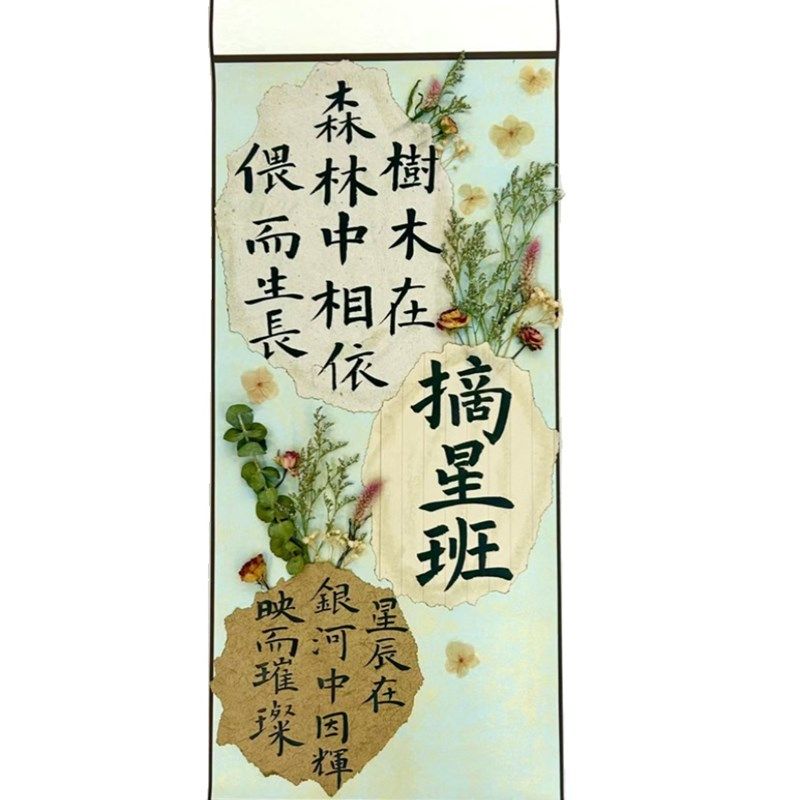 樹木在
森林中相依
偎而生長
摘星班
星辰在
銀河中因輝
映而璀璨